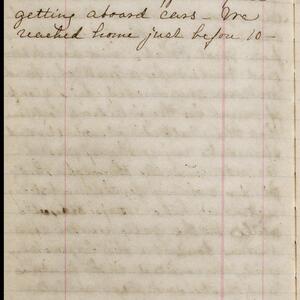 getting aboard cars - We
reached home just before 10 -